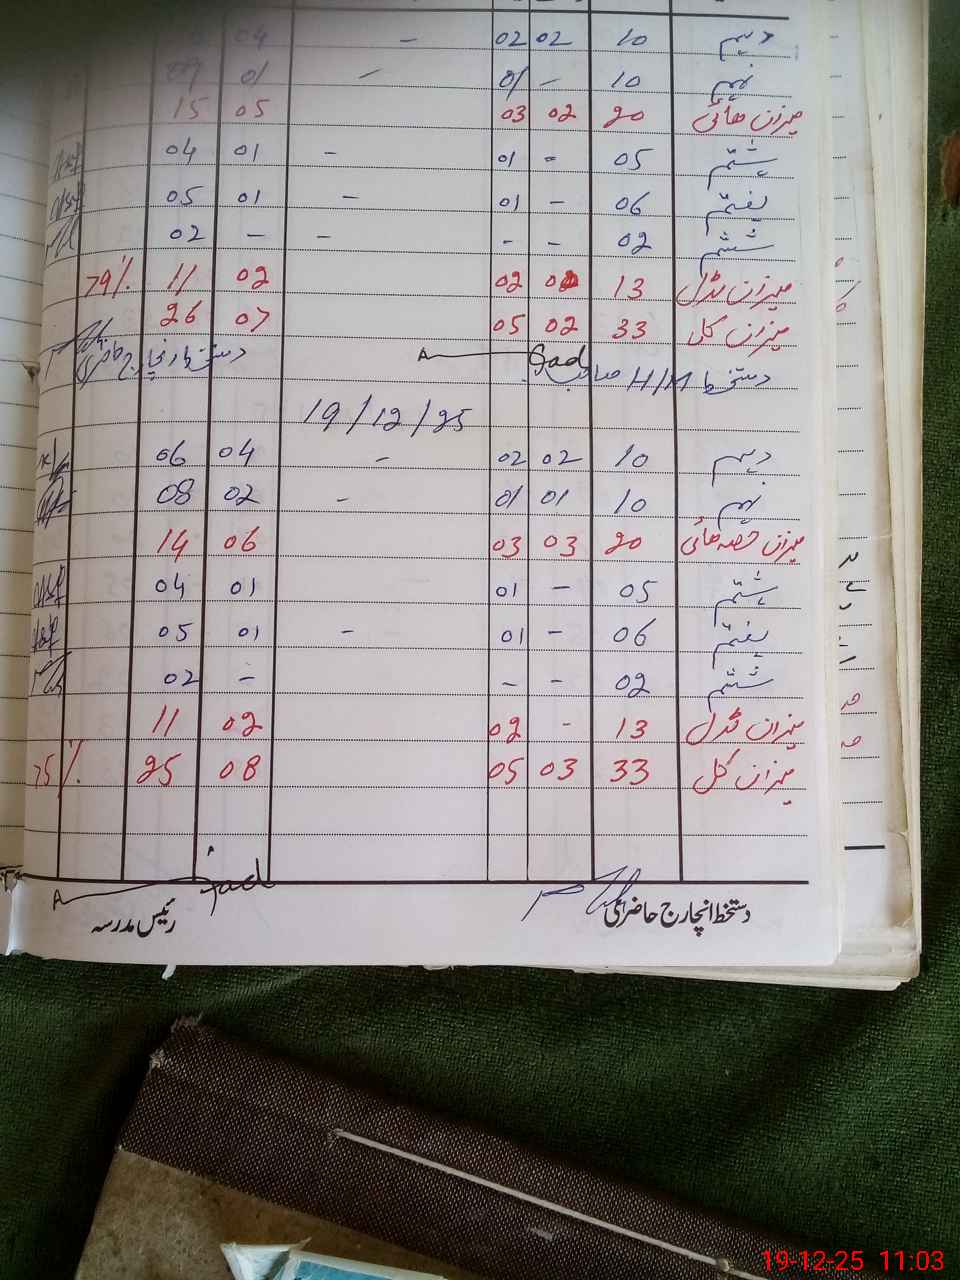 دہم 10 02 02 - 04
نہم 10 - 01 - 01 09
میزان ھائی 20 02 03 05 15
ہشتم 05 - 01 - 01 04
ہفتم 06 - 01 - 01 05
ششم 02 - - - - 02
میزان مڈل 13 02 02 11 79%
میزان کل 33 02 05 07 26
دستخط H/M صاحب دستخط انچارج حاضری
19/12/25
دہم 10 02 02 - 04 06
نہم 10 01 01 - 02 08
میزان حصہ ھائی 20 03 03 06 14
ہشتم 05 - 01 01 04
ہفتم 06 - 01 - 01 05
ششم 02 - - - 02
میزان مڈل 13 - 02 02 11
میزان کل 33 03 05 08 25 75%
دستخط انچارج حاضری رئیس مدرسہ
19-12-25 11:03